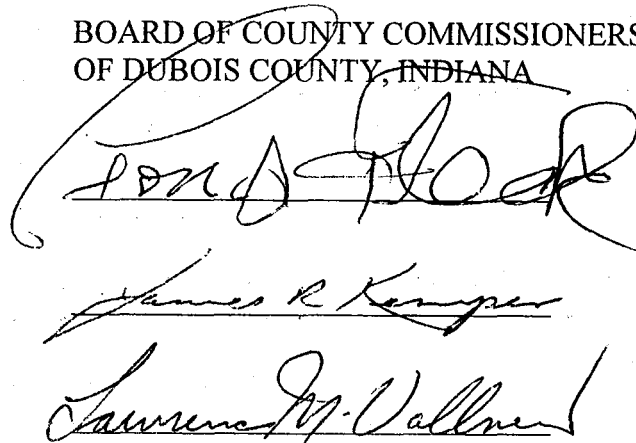 BOARD OF COUNTY COMMISSIONERS
OF DUBOIS COUNTY, INDIANA
James R Kemper
Lawrence M. Vollmer